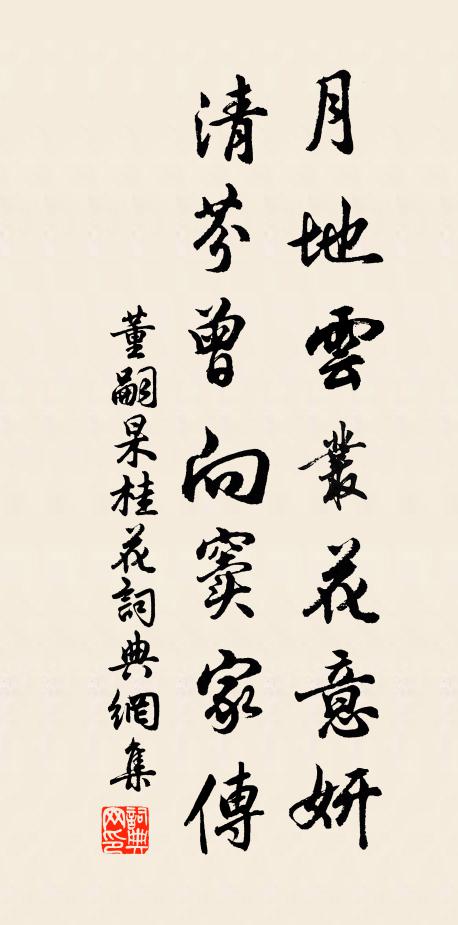 月地雲叢花意妍
清芬曾向竇家傳
董嗣杲桂花詞典網集
詞典網印